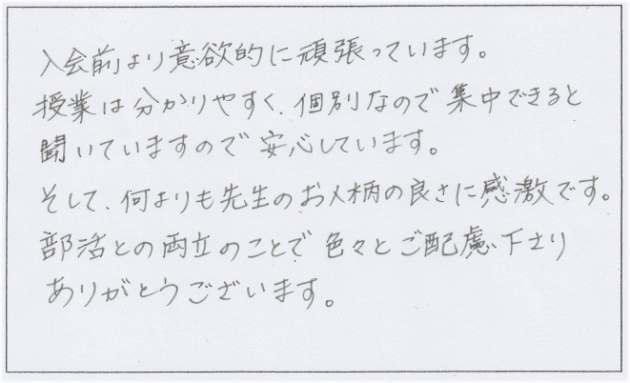 入会前より意欲的に頑張っています。
授業は分かりやすく、個別なので集中できると
聞いていますので安心しています。
そして、何よりも先生のお人柄の良さに感激です。
部活との両立のことで色々とご配慮下さり
ありがとうございます。